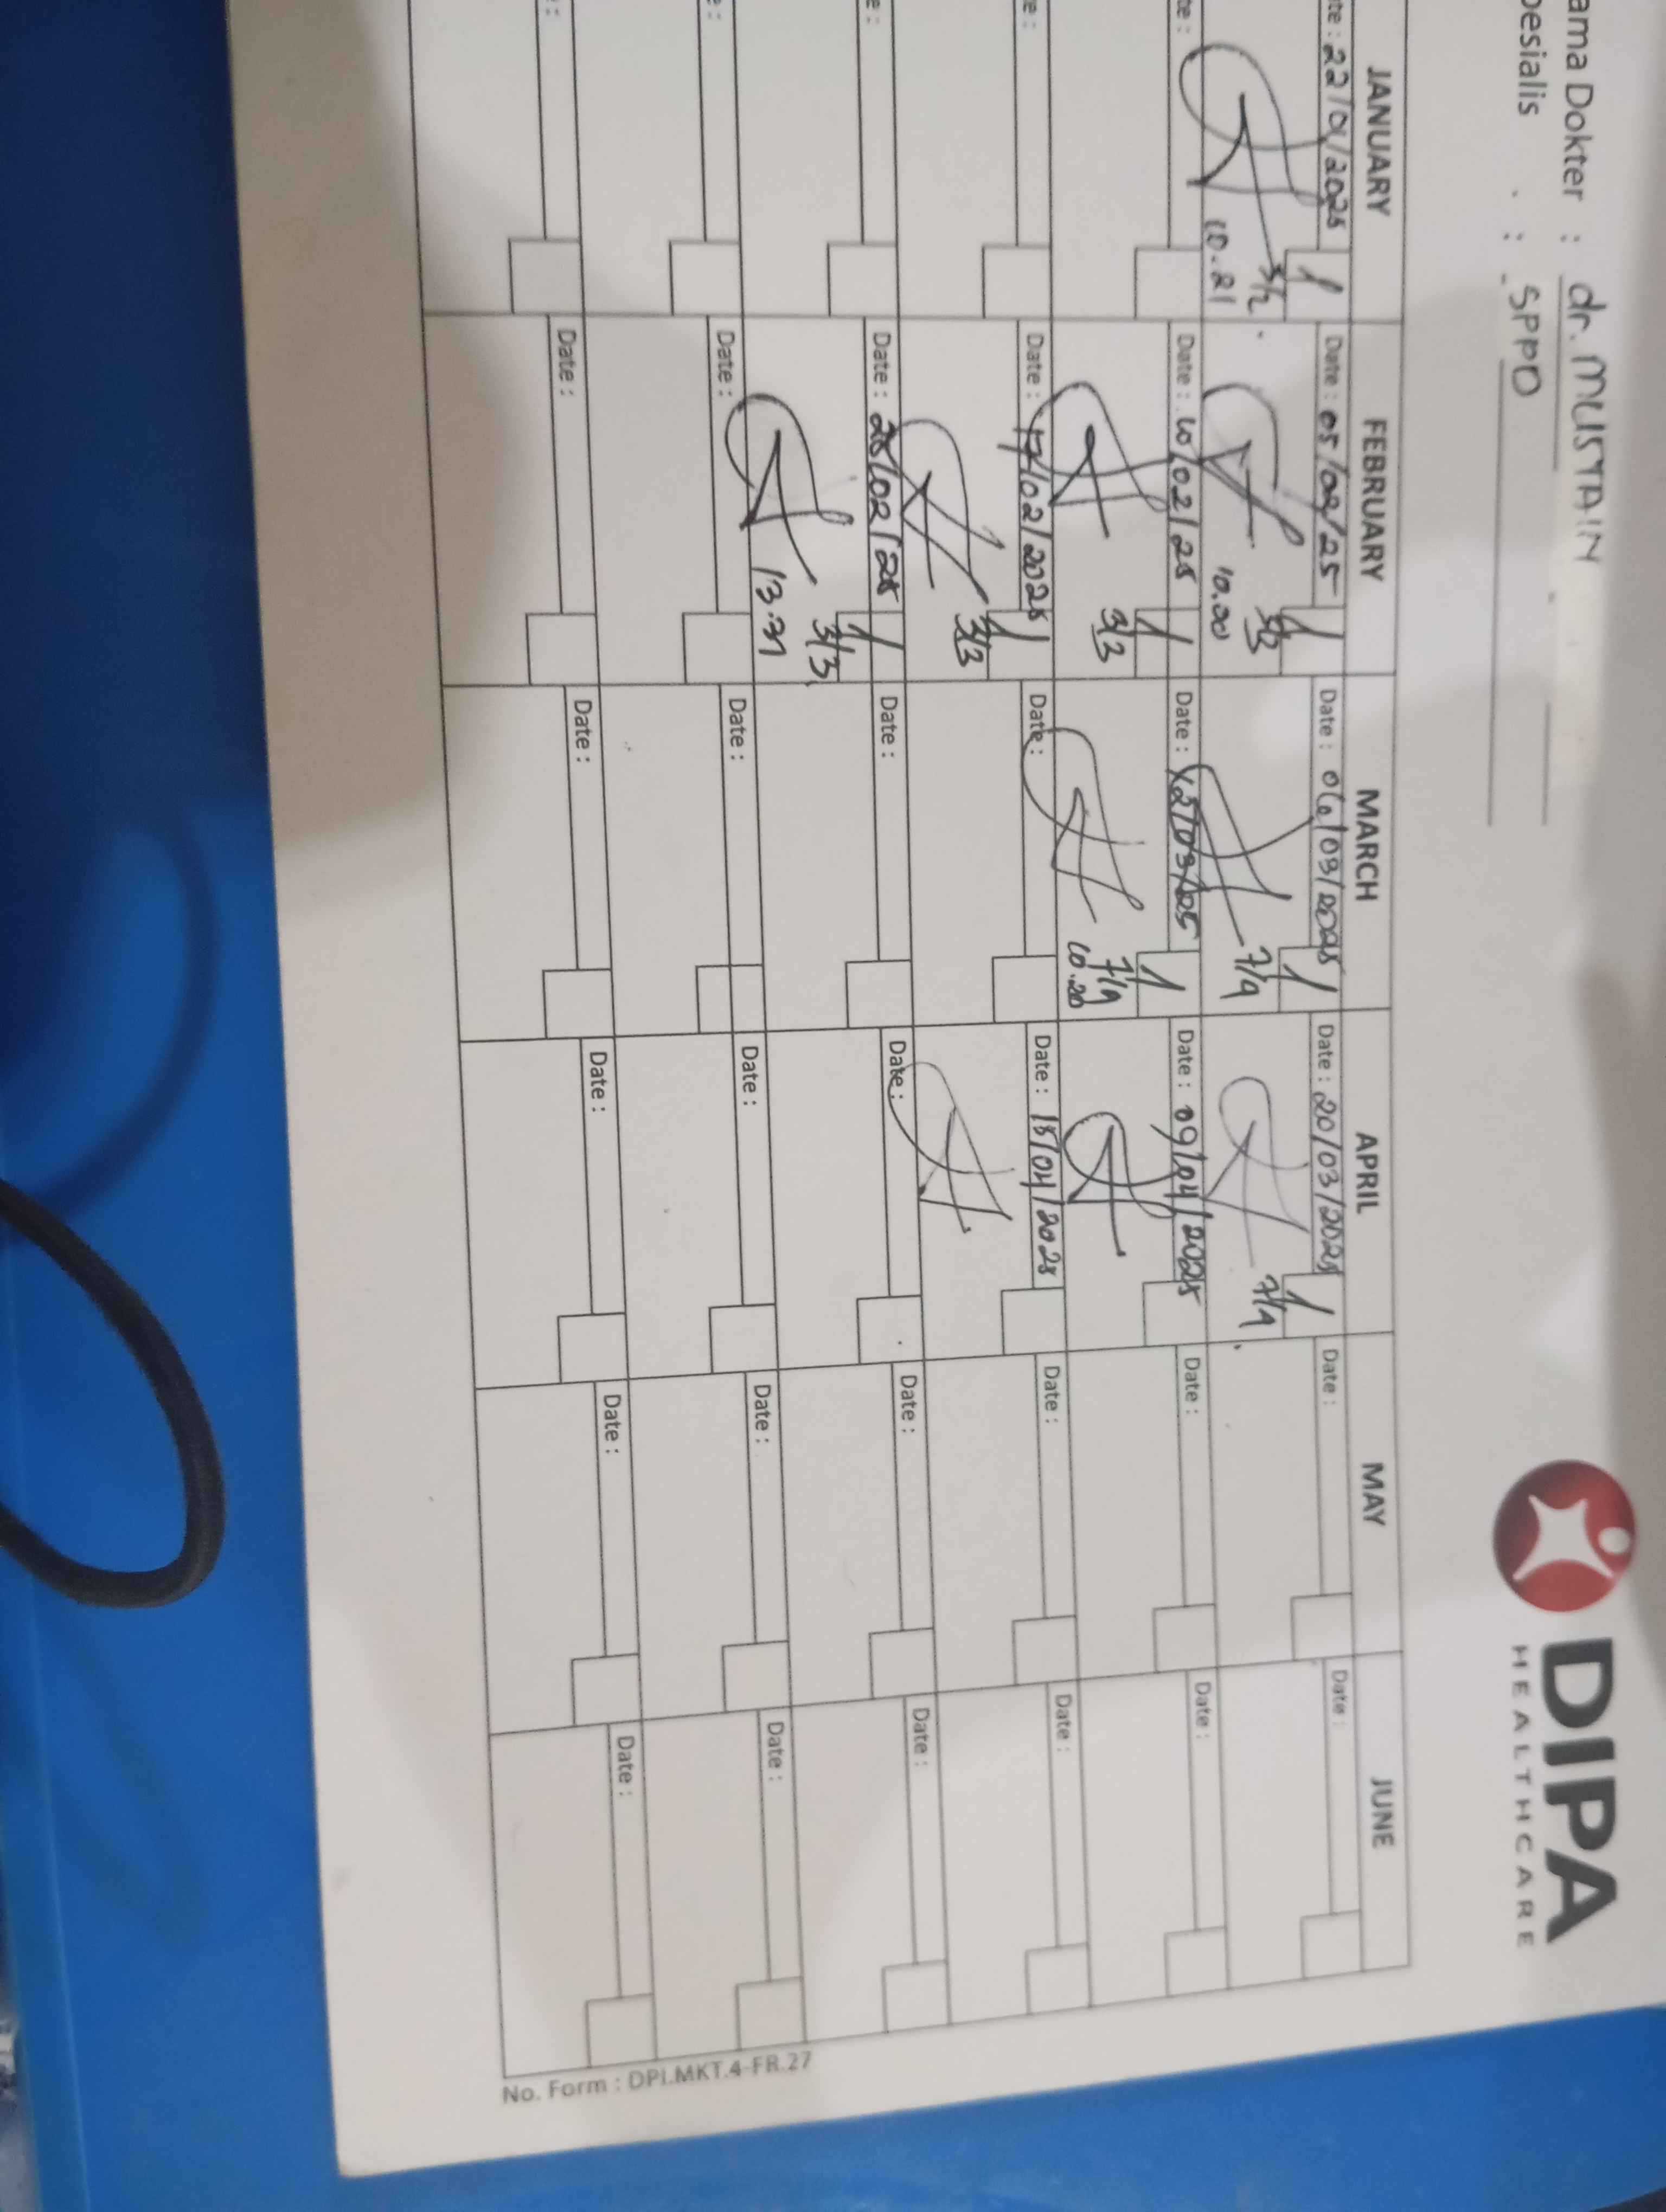 ama Dokter : dr. MUSTAIN
pesialis : SPPD
DIPA
HEALTHCARE
JANUARY FEBRUARY MARCH APRIL MAY JUNE
te : 22/01/2025 1 Date : 05/02/25 1 Date : 06/03/2025 1 Date : 20/03/2025 1 Date : Date :
3/2 7/4 7/4
10.21 10.00
te : Date : 10/02/25 1 Date : 12/03/2025 1 Date : 09/04/2025 Date : Date :
3/3 7/4
10.20
e : Date : 17/02/2025 1 Date : Date : 15/04/2025 Date : Date :
3/3
e : Date : 25/02/25 1 Date : Date : Date : Date :
3/3
13.31
e : Date : Date : Date : Date : Date :
: Date : Date : Date : Date : Date :
No. Form : DPI.MKT.4-FR.27